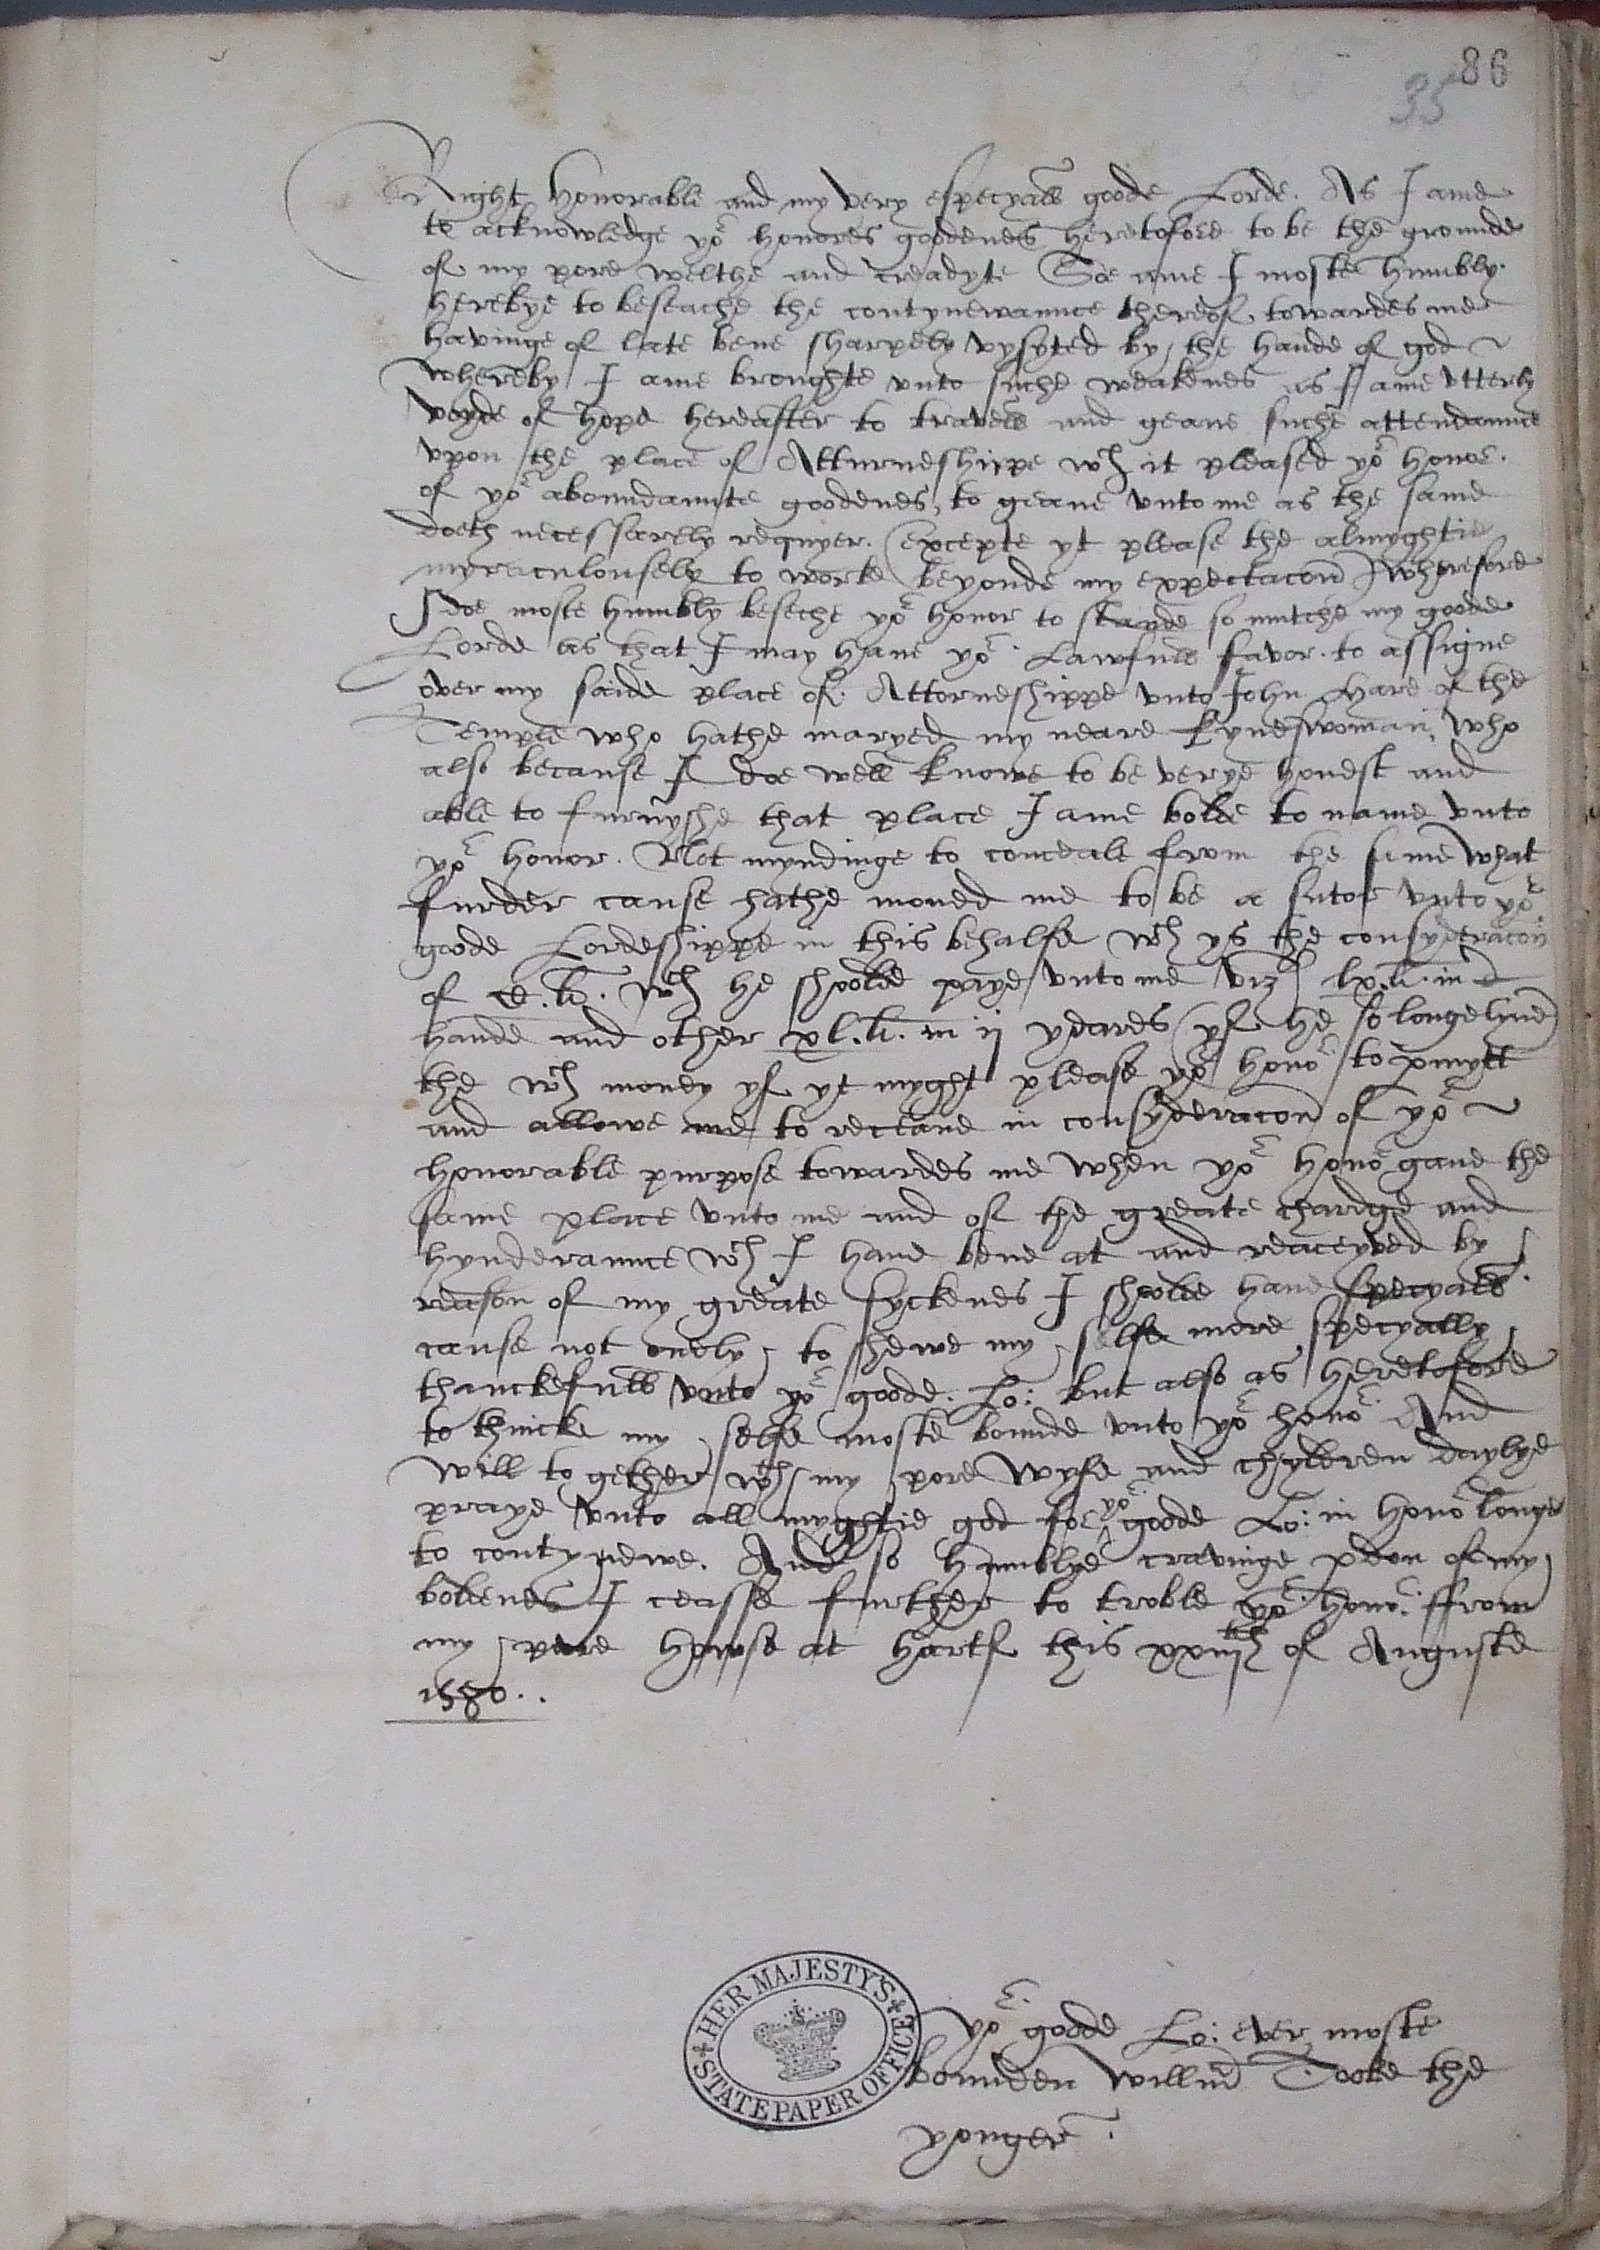 86
35
Right honorable and my very especyall goode Lorde. As I ame
to acknowledge yor honores goodenes heretofore to be the grounde
of my pore welthe and creadyte Soe ame I moste humbly
herebye to beseache the contynewaunce thereof towardes me
havinge of late bene sharpely vysyted by the hande of god
whereby I ame broughte vnto suche weakenes as I ame vtterly
voyde of hope hereafter to travell and geave suche attendaunce
vpon the place of Atturneshippe wch it pleased yor honor.
of yor aboundaunte goodenes to geave vnto me as the same
doeth necessarely requyer. (excepte yt please the almyghtie
myraculousely to worke beyonde my expectacon) wherefore
I doe moste humbly beseche yor honor to stande so mutche my goode
Lorde as that I may have yor Lawfull favor to assigne
over my saide place of Attorneshippe vnto John Hare of the
Temple who hathe maryed my neare kyneswoman, who
also because I doe well knowe to be verye honest and
able to furnyshe that place I ame bolde to name vnto
yor honor. Not myndinge to conceale from the same what
furder cause hathe moued me to be a sutor vnto yor
goode Lordeshippe in this behalfe wch ys the consyderacon
of C.li. wch he shoolde paye vnto me viz lx.li. in
hande and other xl.li. in ij yeares (yf he so longe lyue)
the wch money yf yt myght please yor honor to pmytt
and allowe me to receaue in consyderacon of yor
honorable purpose towardes me when yor honor gaue the
same place vnto me and of the greate chardge and
hynderaunce wch I haue bene at and reaceyved by
reason of my greate syckenes I shoolde haue specyall
cause not onely to shewe my selfe more specyally
thanckefull vnto yor goode Lo: but also as heretofore
to thincke my selfe moste bounde vnto yor honor. And
will to gether wth my pore wyfe and chyldren daylye
praye vnto all myghtie god for yor goode Lo: in honor longe
to contynewe. And so humblye cravinge pdon of my
boldenes I ceasse further to troble yor honor. ffrom
my pore howse at Hartf this xxiiijth of Auguste
1580..
yor goode Lo: ever moste
bounden Willm Tooke the
yonger.
HER MAJESTY'S
STATE PAPER OFFICE